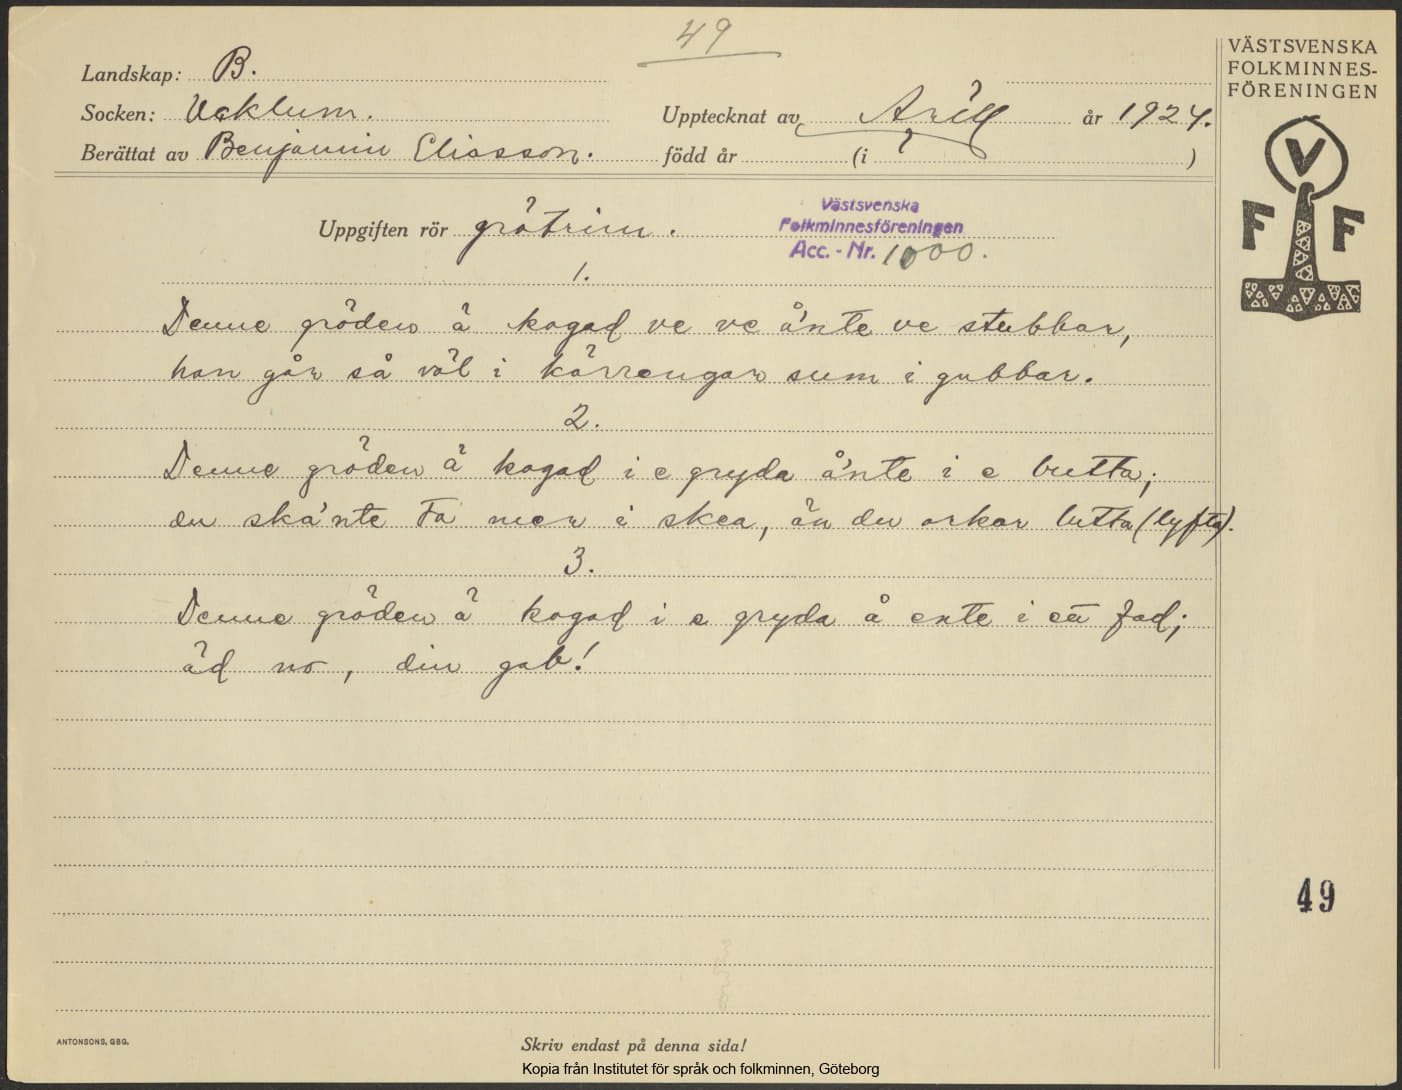 49
VÄSTSVENSKA
FOLKMINNES-
FÖRENINGEN
Landskap: B.
Socken: Ucklum. Upptecknat av Arill år 1924.
Berättat av Benjamin Eliasson. född år (i ? )
V
F F
Uppgiften rör grötrim.
Västsvenska
Folkminnesföreningen
Acc. - Nr. 1000.
1.
Denne gröden ä kogad ve ve å'nte ve stubbar,
han går så väl i kärrengar sum i gubbar.
2.
Denne gröden ä kogad i e gryda å'nte i e butta;
du ska'nte ta mer i skea, än du orkar lutta (lyfta).
3.
Denne gröden ä kogad i e gryda å ente i ett fad;
äd no, din gab!
49
ANTONSONS, GBG.
Skriv endast på denna sida!
Kopia från Institutet för språk och folkminnen, Göteborg